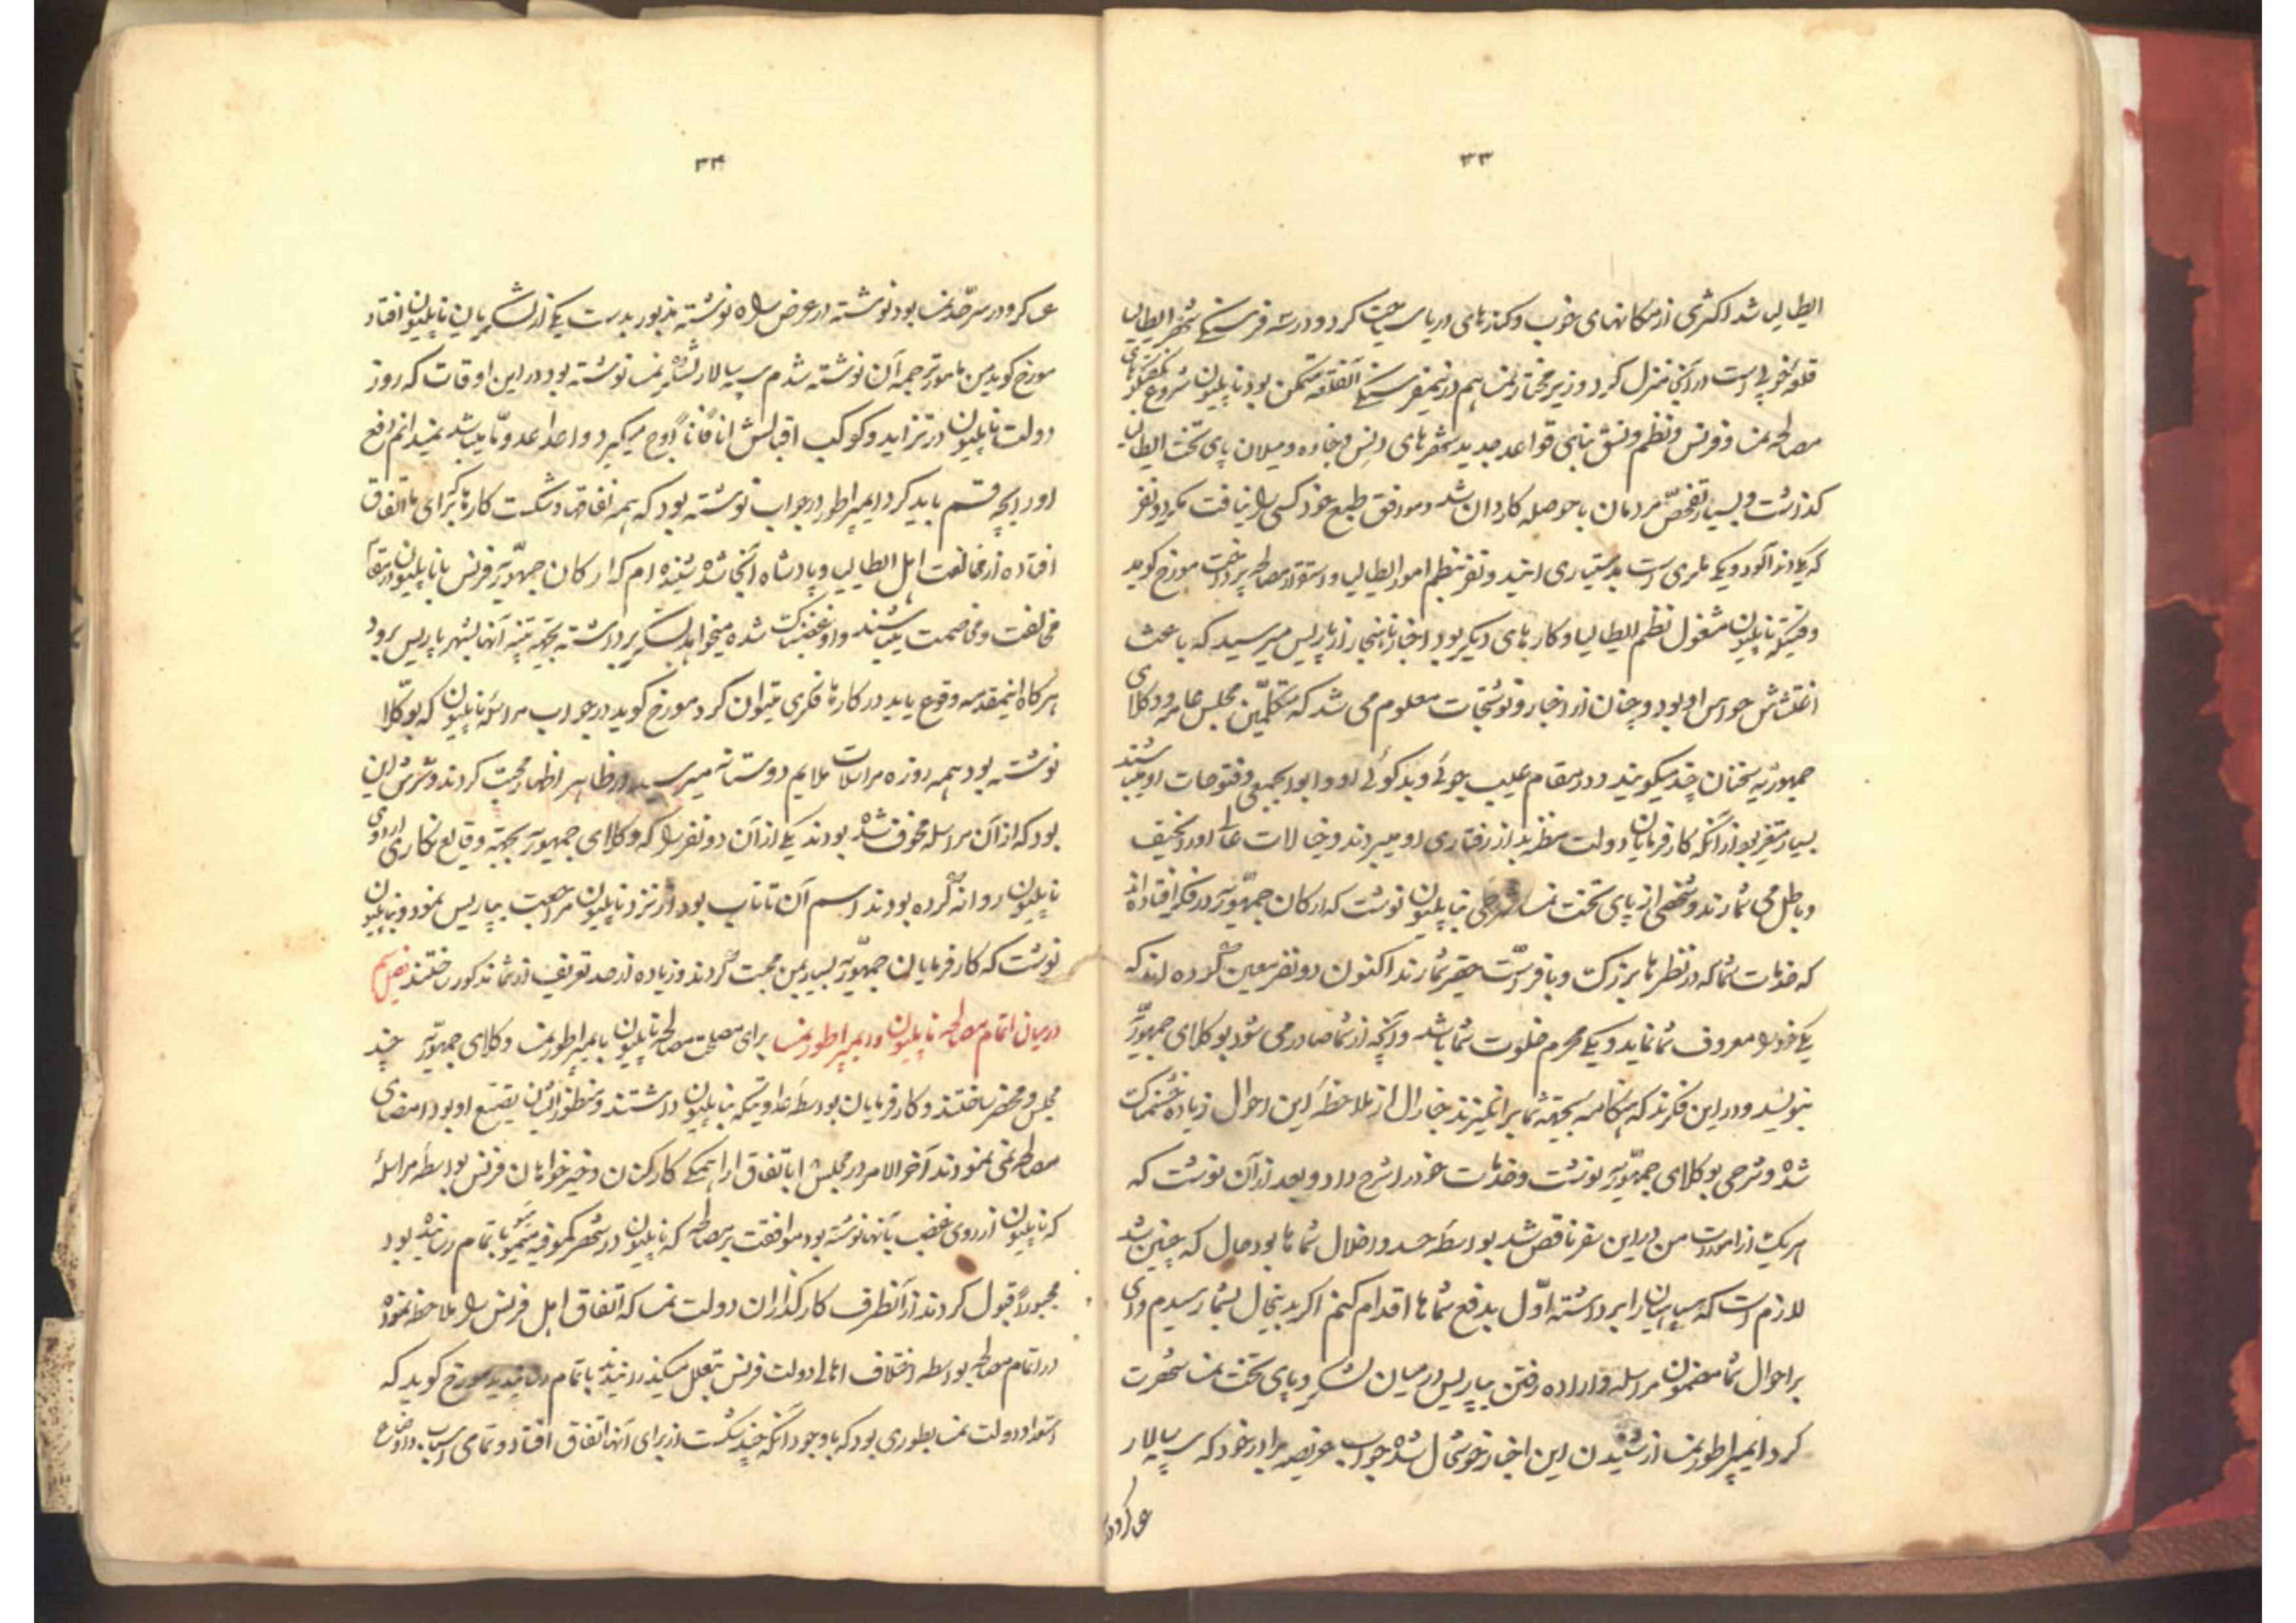 ۳۳
ایطالیا شد اکثری از مکانهای خوب و کنارهای دریا سیاحت کرد و در سه فرسنگی شهر ایطالیا
قلعه خوبی است در آنجا منزل کرد و وزیر مختار نمسا هم در نیم فرسنگی آنقلعه متمکن بود ناپلیون شروع بگفتگوهای
مصالحه نمسا و فرنس و نظم و نسق بنای قواعد جدید شهرهای ونس و جناوه و میلان پای تخت ایطالیا
گذرشت و بسیار تفحص مردمان با حوصله کاردان شد و موافق طبع خود کسی را نیافت مگر دو نفر
که یکی دندالو و یکی ملزی است بدستیاری ایندو نفر بنظم امور ایطالیا و استقرار مصالحه پرداخت مورخ کوید
وقتیکه ناپلیون مشغول نظم ایطالیا و کارهای دیگر بود اخبار ناهنجار از پاریس میرسید که باعث
اغتشاش حواس او بود و چنان از اخبار و نوشتجات معلوم می شد که متکلمین مجلس عامه و وکلای
جمهوریه سخنان چند میکویند و در مقام عیب جوئی و بدکوئی او و ابواب جمعی و فتوحات او میباشند
بسیار متغیر بود از آنکه کارفرمایان دولت مظنه بد از رفتاری او میبردند و خیالات عالی او را خفیف
و باطل می شمارند و شخصی از پای تخت نمسا شرحی بناپلیون نوشت که ارکان جمهوریه در فکر افتاده اند
که خدمات شما که در نظر ما بزرکست و با فر است حقیر شمارند اکنون دو نفر معین کرده اند که
یکی خود را معروف شما نماید و یکی محرم خلوت شما باشد و آنچه از شما صادر می شود بوکلای جمهوریه
بنویسند و در این فکرند که هنکامه بجهته شما برانگیزند جنارال از ملاحظه این احوال زیاده خشمناک
شده و شرحی بوکلای جمهوریه نوشت و خدمات خود را شرح داد و بعد از آن نوشت که
هر یک از امورات من در این سفر ناقص شد بواسطه حسد و اخلال شماها بود حال که چنین شد
لازم است که سپاهیان را برداشته اول بدفع شماها اقدام کنم اکر بدینحال بشما رسیدم وای
بر احوال شما مضمون مراسله و اراده رفتن بپاریس در میان لشکر و پای تخت نمسا شهرت
کرد ایمپراطور نمسا از شنیدن این اخبار خوشحال شده جواب عریضه برادر خود که سپه سالار
عساکر و در
۳۴
عساکر و در سرحد نمسا بود نوشته در عرض راه نوشته مذبور بدست یکی از لشکریان ناپلیون افتاد
مورخ کوید من مامور ترجمه آن نوشته شدم سپه سالار لشکر نمسا نوشته بود در این اوقات که روز
دولت ناپلیون در تزاید و کوکب اقبالش آنا فآنا اوج میگیرد و احدا عدو ما میباشد نمیدانم دفع
او را بچه قسم باید کرد ایمپراطور در جواب نوشته بود که همه نفاقها و شکست کارها که برای ما اتفاق
افتاده از مخالفت اهل ایطالیا و پادشاه آنجا شده شنیده ام که ارکان جمهوریه فرنس با ناپلیون در مقام
مخالفت و مخاصمت میباشند و او غضبناک شده میخواهد لشکر برداشته بجهته تنبیه آنها بشهر پاریس برود
هر کاه اینمقدمه وقوع یابد در کارها فکری میتوان کرد مورخ کوید در جواب مراسله ناپلیون که بوکلا
نوشته بود همه روزه مراسلات ملایم دوستانه میرسید و در ظاهر اظهار محبت کردند و شرش این
بود که از آن مراسله مخوف شده بودند یکی از آن دو نفر را که وکلای جمهوریه بجهته وقایع نکاری اردوی
ناپلیون روانه کرده بودند اسم آن تاناب بود از نزد ناپلیون مراجعت بپاریس نمود و بناپلیون
نوشت که کارفرمایان جمهوریه بسیار بمن محبت کردند و زیاده از حد تعریف از شما مذکور ساختند فصل
در بیان اتمام مصالحه ناپلیون و ایمپراطور نمسا برای مصلحت مصالحه ناپلیون با ایمپراطور نمسا وکلای جمهوریه چند
مجلس و محضر ساختند و کارفرمایان بواسطه عداوتیکه بناپلیون داشتند و منظور ایشان تضییع او بود امضای
مصالحه نمی نمودند آخر الامر در مجلس باتفاق آرا همگی کارکنان و خیرخواهان فرنس بواسطه مراسله
که ناپلیون از روی غضب بآنها نوشته بود موافقت بر مصالحه که ناپلیون در شهر باتمام رسانیده بود
مجبوراً قبول کردند از آنطرف کارگذاران دولت نمسا که اتفاق اهل فرنس را ملاحظه نموده
در اتمام مصالحه بواسطه اختلاف اهالی دولت فرنس بتعلل میکذرانیدند باتمام رسانیدند مورخ کوید که
استعداد دولت نمسا بطوری بود که باوجود آنکه چند شکست از برای آنها اتفاق افتاد و تمامی اسباب و اوضاع